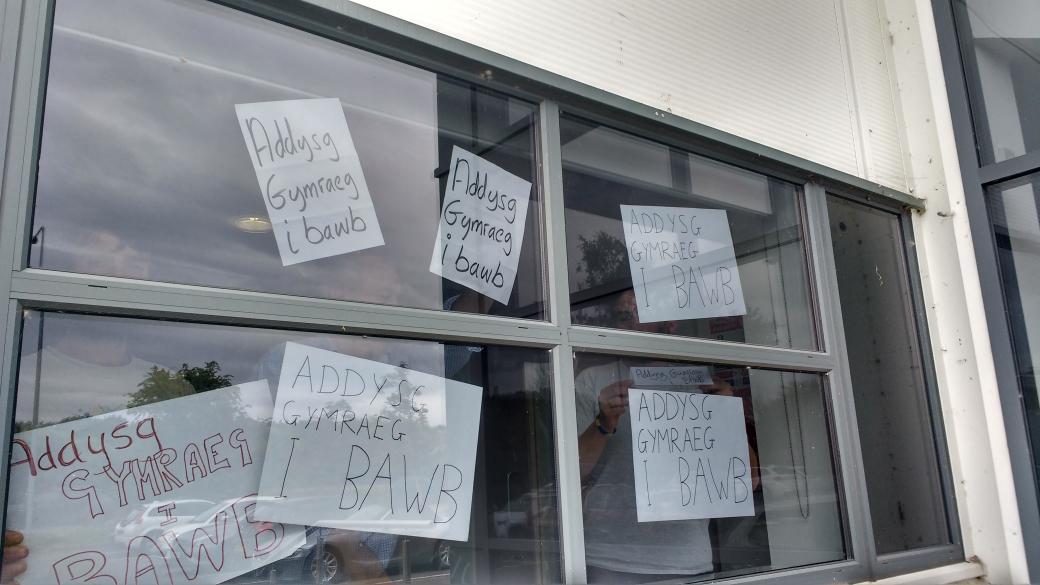 Addysg
Gymraeg
i bawb
Addysg
Gymraeg
i bawb
ADDYSG
GYMRAEG
I BAWB
Addysg
GYMRAEG
I
BAWB
ADDYSG
GYMRAEG
I BAWB
Addysg
ADDYSG
GYMRAEG
I BAWB